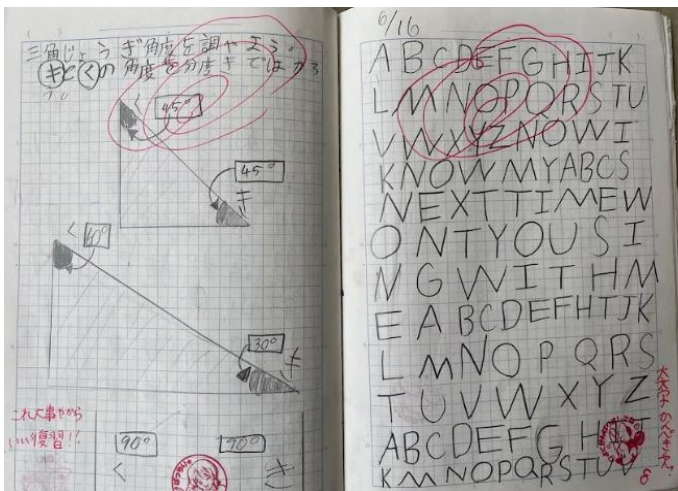 三角じょうぎ角度を調べよう。
きとくの角度を分度きではかろう
く
45°
45°
き
く
60°
30°
き
これ大事やから
いい復習!!
90°
90°
く
き
6/16
ABCDEFGHIJK
LMNOPQRSTU
VWXYZNOWI
KNOWMYABCS
NEXTTIMEW
ONTYOUSI
NGWITHM
EABCDEFHIJK
LMNOPQRS
TUVWXYZ
ABCDEFGHI
KMNOPQRSTUV
大文字かんぺきです